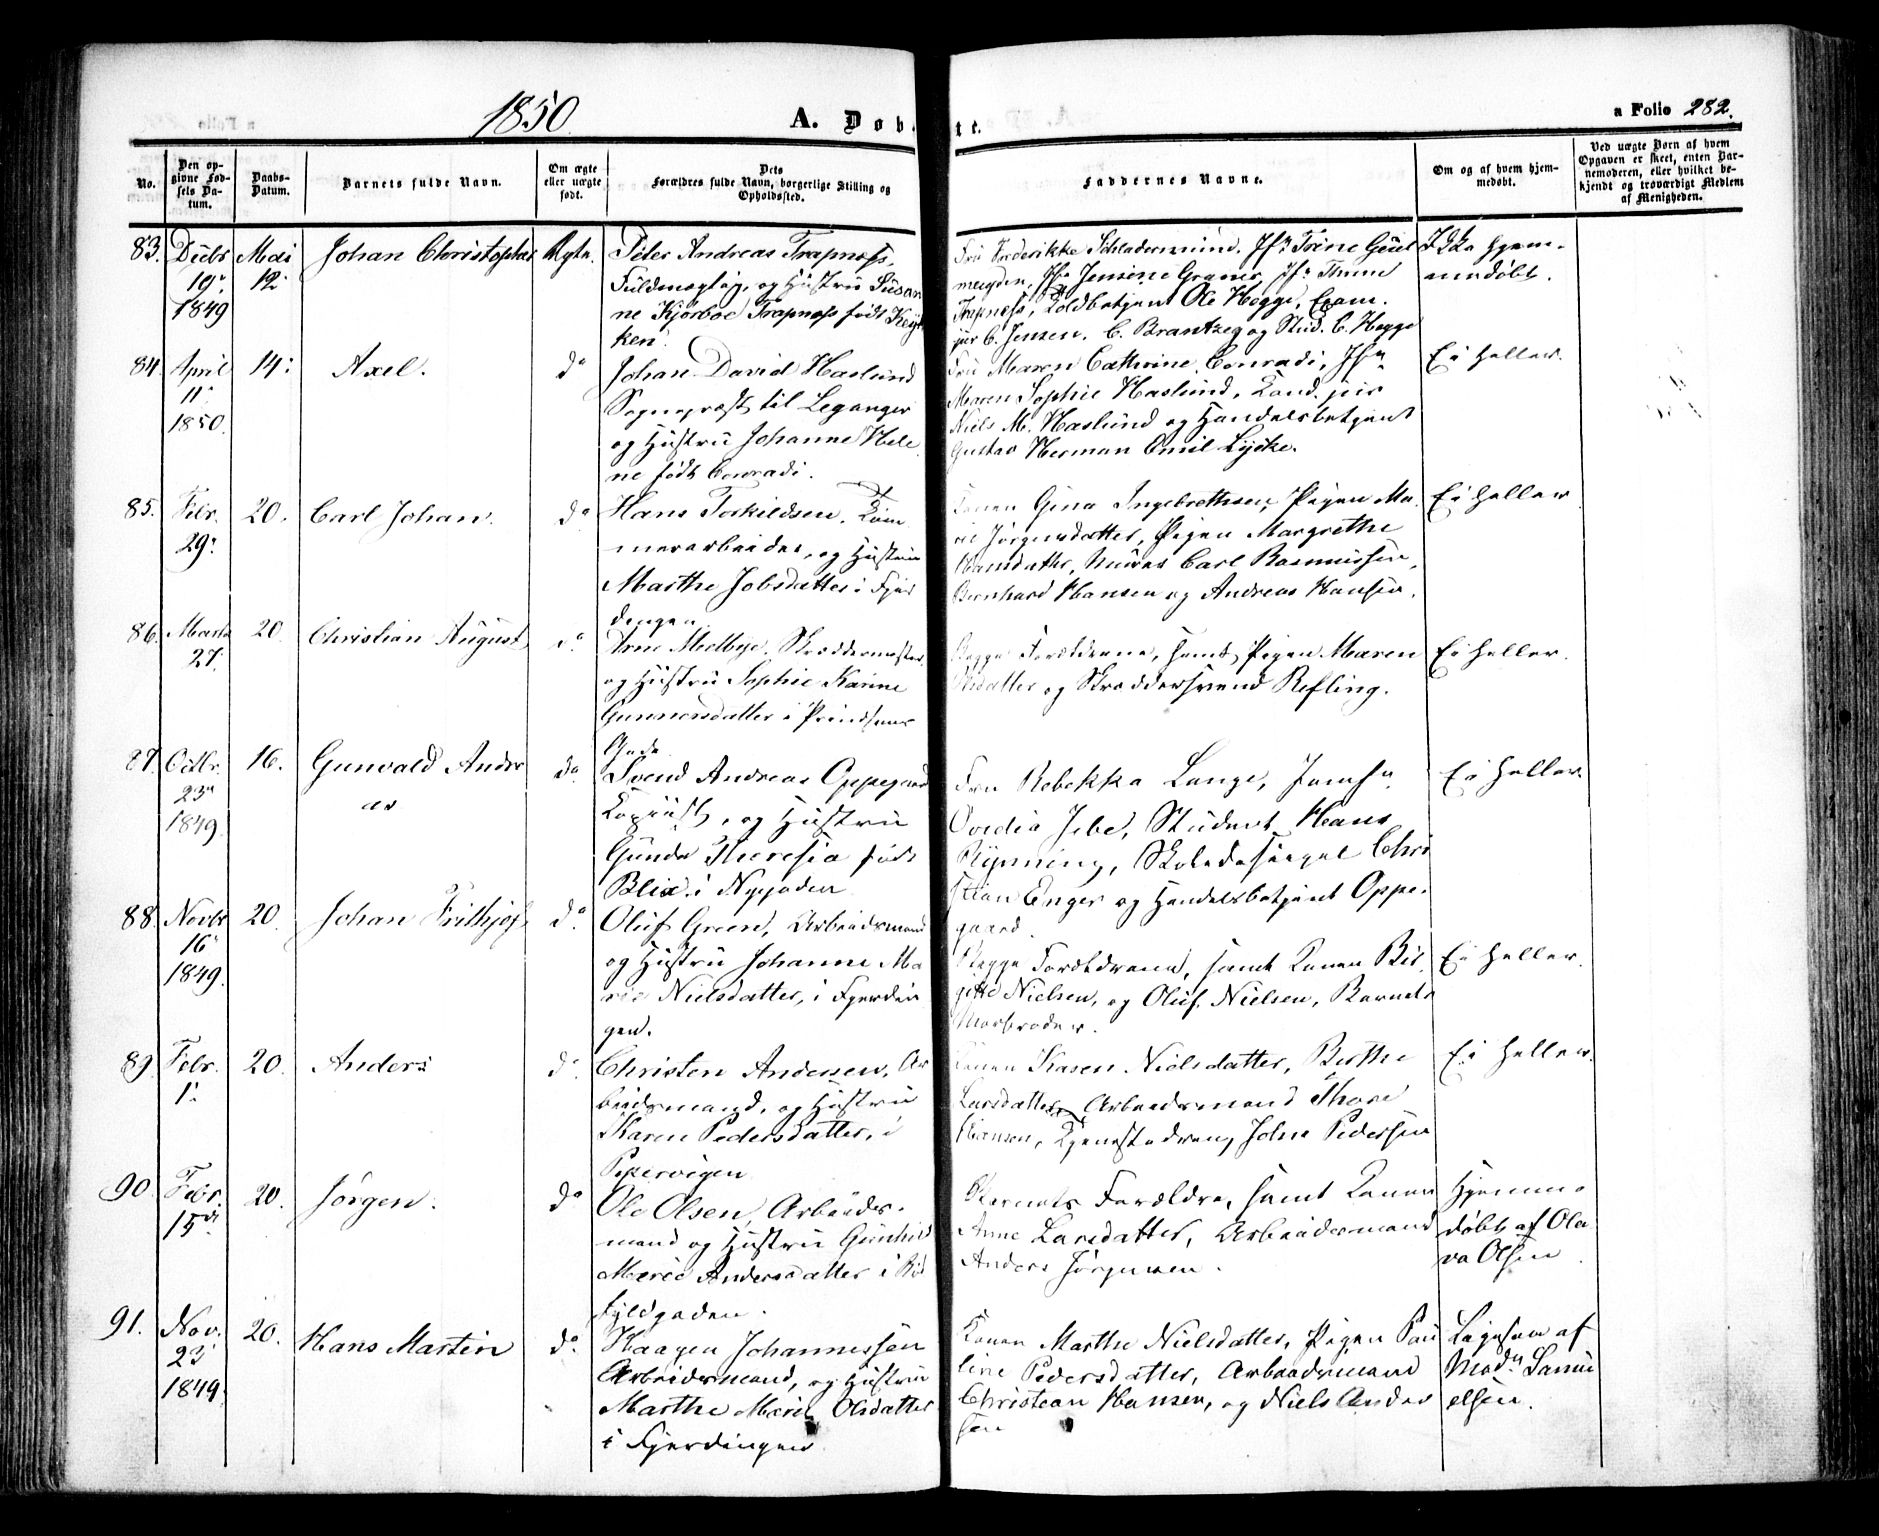 1850.
A. Døbte.
a Folio 282.
No.
Den opgivne Fødsels Datum.
Daabs-Datum.
Barnets fulde Navn.
Om ægte eller uægte født.
Dets Forældres fulde Navn, borgerlige Stilling og Opholdssted.
Faddernes Navne.
Om og af hvem hjemmedøbt.
Ved uægte Børn af hvem Opgaven er skeet, enten Barnemoderen, eller hvilket bekjendt og troværdigt Medlem af Menigheden.
83. Decbr 19de 1849
Mai 12
Johan Christopher
Ægte.
Peter Andreas Trapness,
Fuldmægtig, og Hustru Susan
ne Kjørboe Trapness født
ken.
Fru Frederikke Schladermund, Jfr Trine
Jfr Jensene Jfr
Trapness, Toldbetjent Ole Hegge, Exam.
jur C. Jensen, C. Brantzeg og Stud. C. Hegge
Ikke hjem-
medøbt.
84. April 11 1850.
14.
Axel.
do
Johan David Haslund
Sognepræst til Leganger
og Hustru Johanne Hele
ne født Conradi.
Fru Maren Cathrine Conradi, Jfr
Maren Sophie Haslund, Cand. jur
Niels M. Haslund og Handelsbetjent
Gustav Herman Emil Lycke.
Ei heller.
85. Febr. 29.
20.
Carl Johan.
do
Hans Torkildsen, Tøm
merarbeider, og Hustru
Marthe Jobsdatter i Fjer
dingen.
Konen Gina Ingebrethsen, Pigen Ma
rie Jørgensdatter, Pigen Margrethe
Hansdatter, Murer Carl Rasmussen,
Bernhard Hansen og Andreas Hansen.
Ei heller
86. Marts 27.
20.
Christian August
do
Arne Melbye, Skræddermester
og Hustru Sophie Karine
Gunnersdatter i Prindsens
Gade
Begge Forældrene, samt Pigen Maren
Olsdatter og Skræddersvend Refling.
Ei heller.
87. Octbr. 23 1849.
16.
Gunvald Andre
as
do
Svend Andreas Oppegaard
Kopiist, og Hustru
Gunda Theresia født
Blix i Nygaden
Fru Rebekka Lange, Jomfr.
Ovedia Jebe, Student Hans
Rynning, Skolediscipel Chri
stian Enger og Handelsbetjent Oppe-
gaard.
Ei heller.
88. Novbr 16 1849.
20.
Johan Frithjof
do
Oluf Green, Arbeidsmand
og Hustru Johanne Ma
rie Nielsdatter, i Fjerdin
gen.
Begge Forældrene, samt Konen Bir
gitte Nielsen, og Oluf Nielsen, Barnets
Morbroder.
Ei heller.
89. Febr. 1
20.
Anders
do
Christen Andersen, Ar
beidsmand, og Hustru
Karen Pedersdatter, i
Pipervigen
Konen Karen Nielsdatter, Berthe
Larsdatter, Arbeidsmand Thore
Hansen, Tjenestedreng John Pedersen
Ei heller.
90. Febr. 15de
20.
Jørgen.
do
Ole Olsen, Arbeids-
mand og Hustru Gunhild
Marie Andersdatter i Rø
fyldgaden.
Barnets Forældre, samt Konen
Anne Larsdatter, Arbeidsmand
Anders Jørgensen.
Hjemme-
døbt af Ola
va Olsen.
91. Nov. 23 1849.
20.
Hans Martin
do.
Haagen Johannessen
Arbeidsmand, og Hustru
Marthe Marie Olsdatter
i Fjerdingen
Konen Marthe Nielsdatter, Pigen Pau
line Pedersdatter, Arbeidsmand
Christian Hansen, og Niels Ander
sen
Ligesaa af
Madm Samu
elsen.